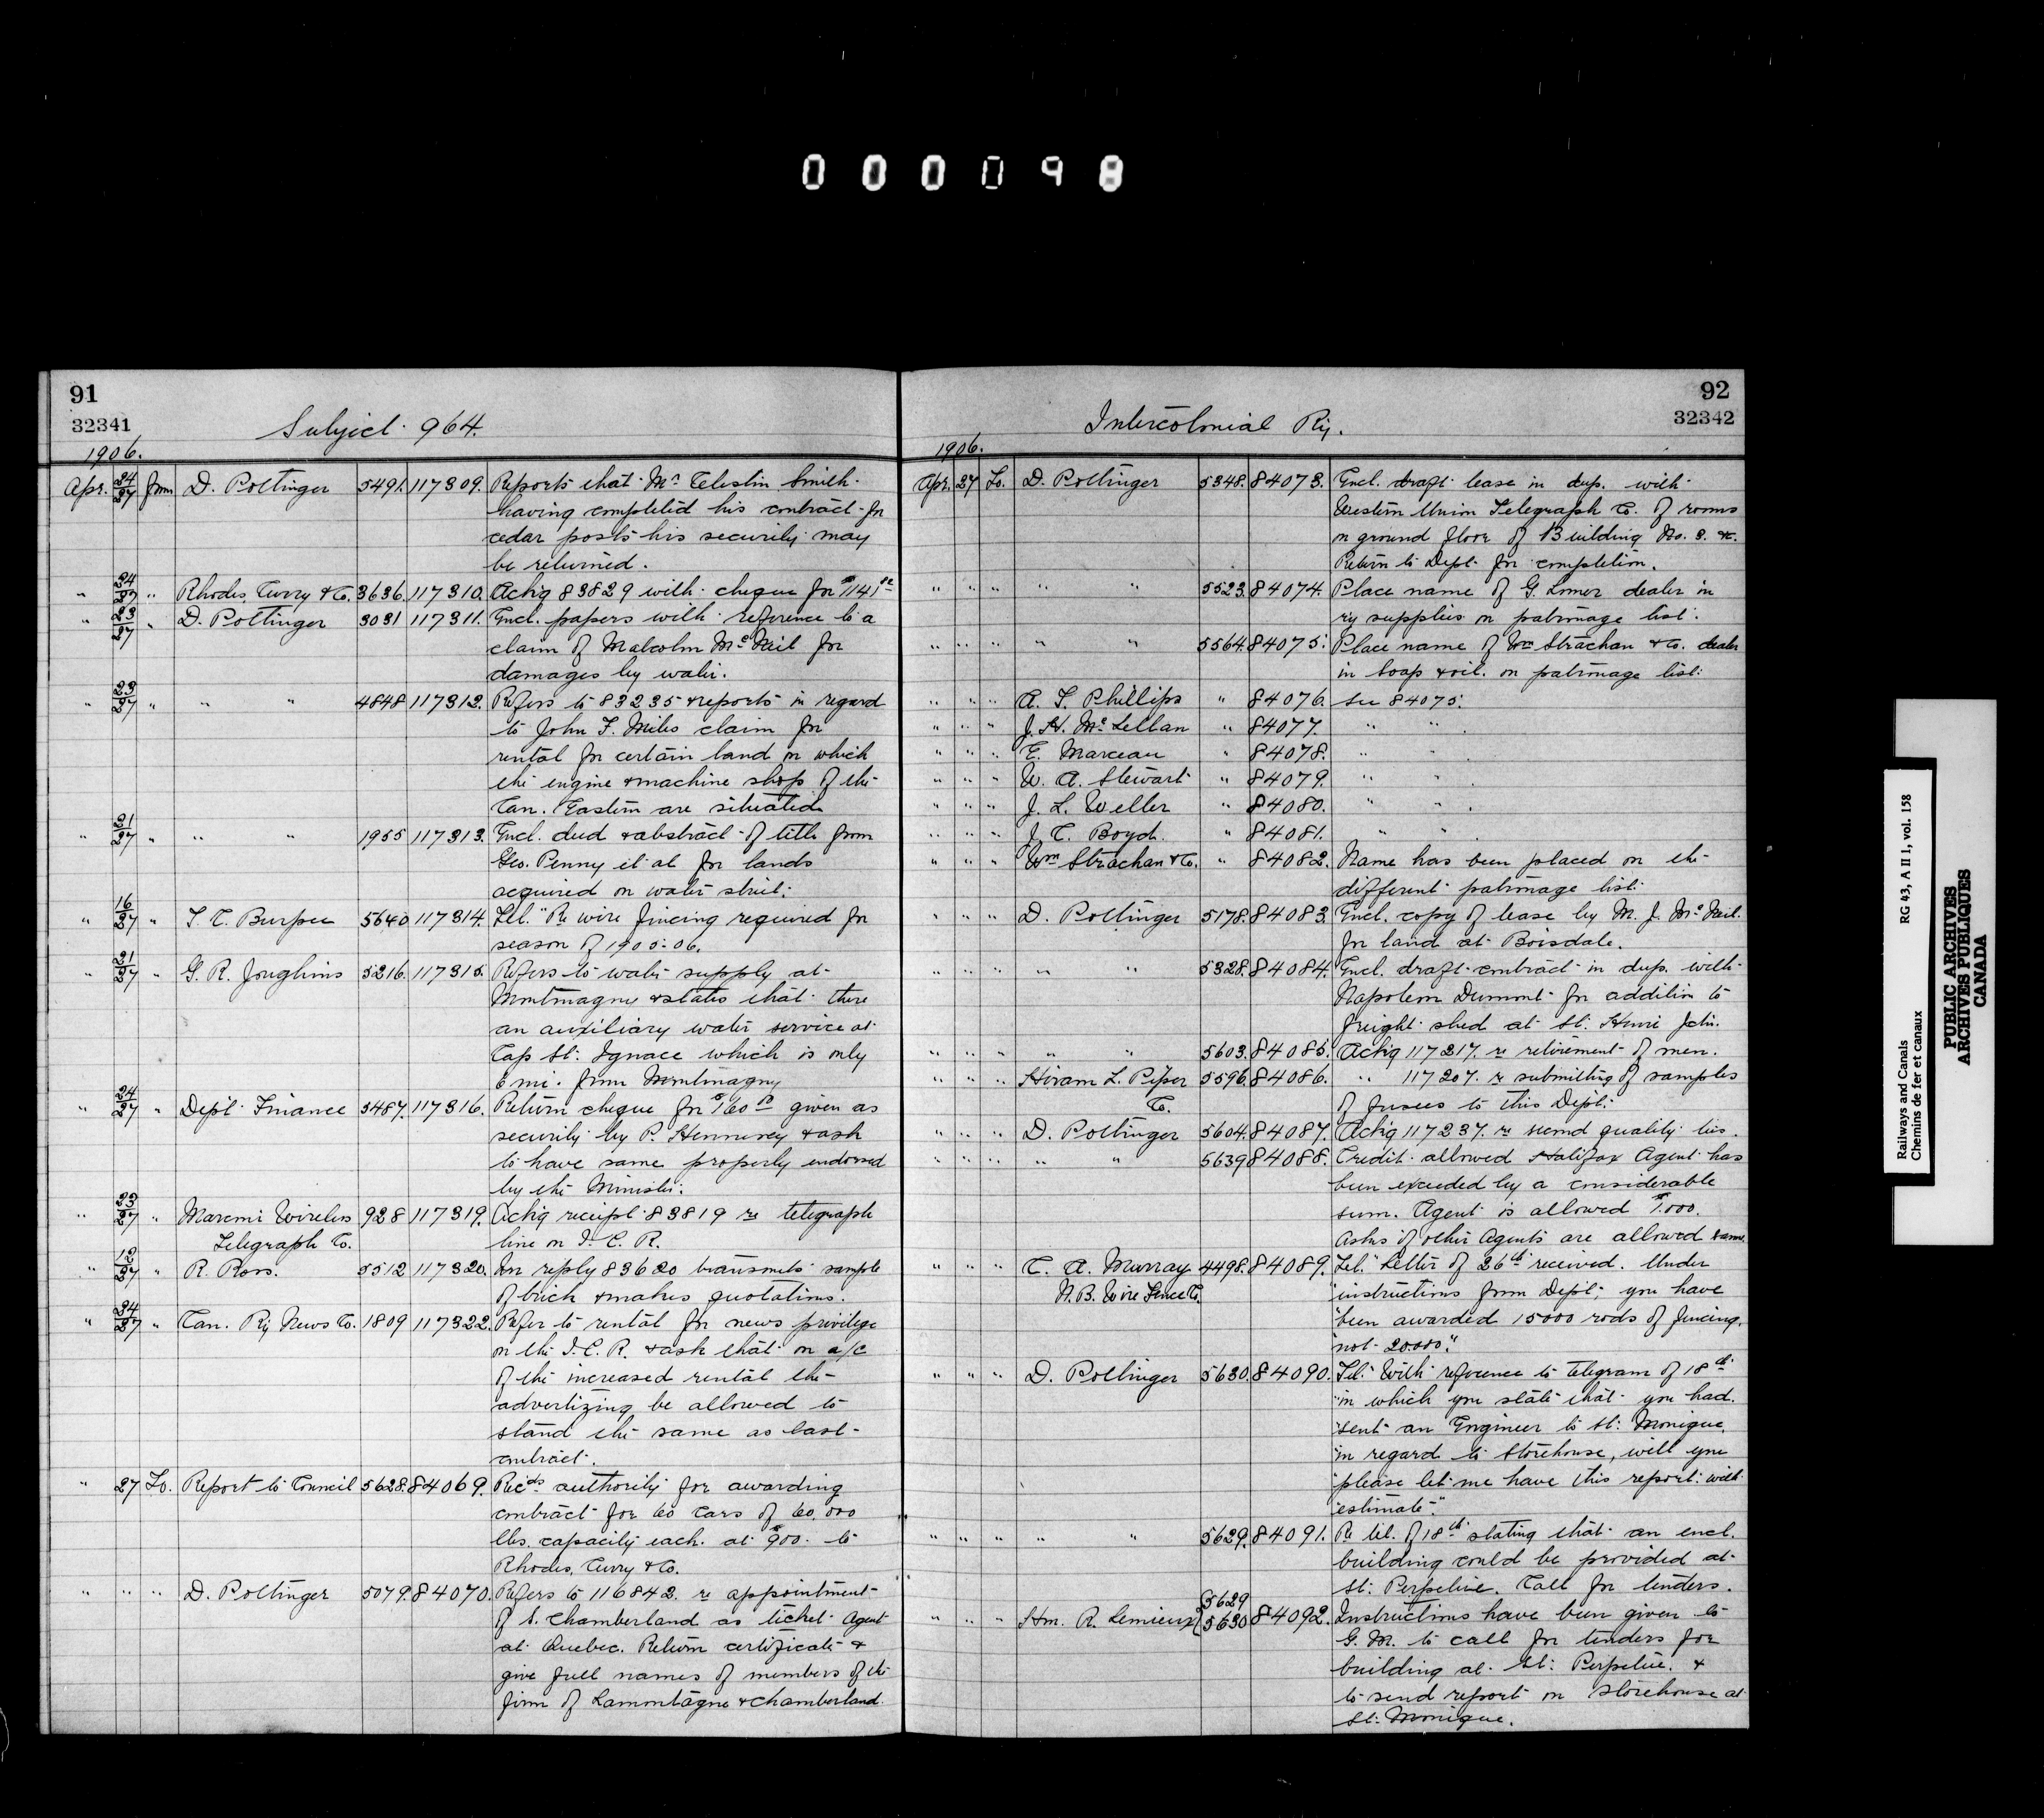 000098
91
32341
Subject 964.
1906.
Apr. 24/27 from D. Pottinger 5491. 117309. Reports that Mr Celestin Smith
having completed his contract for
cedar posts his security may
be returned.
" 24/27 " Rhodes, Curry & Co. 3636. 117310. Ackg 83829 with cheque for $1141
" 23/27 " D. Pottinger 3031 117311. Encl. papers with reference to a
claim of Malcolm McNeil for
damages by water.
" 23/27 " " " 4848 117312. Refers to 83235 & reports in regard
to John F. Miles claim for
rental for certain land on which
the engine & machine shop of the
Can. Eastern are situated
" 21/27 " " " 1955 117313. Encl. deed & abstract of title from
Geo. Penny et al for lands
acquired on water street.
" 16/27 " T. C. Burpee 5640 117314. Tel. "Re wire fencing required for
season of 1905-06.
" 21/27 " G. R. Joughins 5216. 117315. Refers to water supply at
Montmagny & states that there
an auxiliary water service at
Cap St. Ignace which is only
6 mi. from Montmagny
" 24/27 " Dept. Finance 5487. 117316. Return cheque for $160 given as
security by P. Hennessey & ask
to have same properly endorsed
by the Minister.
" 23/27 " Marconi Wireless 928 117319. Ackg receipt 83819 re telegraph
Telegraph Co. line on I. C. R.
" 12/27 " R. Ross. 5512 117320. In reply 83620 transmits sample
of brick & makes quotations.
" 24/27 " Can. Ry News Co. 1809 117322. Refer to rental for news privilege
on the I. C. R. & ask that on a/c
of the increased rental the
advertizing be allowed to
stand the same as last
contract.
" 27 To. Report to Council 5628. 84069. Recds authority for awarding
contract for 60 cars of 60,000
lbs. capacity each at $900. to
Rhodes, Curry & Co.
" " " D. Pottinger 5079. 84070. Refers to 116842. re appointment
of S. Chamberland as ticket Agent
at Quebec. Return certificate &
give full names of members of the
firm of Lamontagne & Chamberland.
92
32342
Intercolonial Ry.
1906.
Apr. 27 To. D. Pottinger 5348. 84073. Encl. draft lease in dup. with
Western Union Telegraph Co. of rooms
on ground floor of Building No. 8. &c.
Return to Dept. for completion.
" " " " " 5523. 84074. Place name of G. Lomer dealer in
ry supplies on patronage list.
" " " " " 5564. 84075. Place name of Wm Strachan & Co. dealer
in Soap & oil on patronage list.
" " " A. T. Phillips " 84076. See 84075.
" " " J. H. McLellan " 84077. " "
" " " E. Marceau " 84078. " "
" " " W. A. Stewart " 84079. " "
" " " J. L. Weller " 84080. " "
" " " J. C. Boyd. " 84081. " "
" " " Wm Strachan & Co. " 84082. Name has been placed on the
different patronage list.
" " " D. Pottinger 5178. 84083. Encl. copy of lease by M. J. McNeil
for land at Boisdale.
" " " " " 5328. 84084. Encl. draft contract in dup. with
Napoleon Dumont for addition to
freight shed at St. Henri Jctn.
" " " " " 5603. 84085. Ackg 117217. re retirement of men.
" " " Hiram L. Piper 5596. 84086. " 117207. re submitting of samples
Co. of fusees to this Dept.
" " " D. Pottinger 5604. 84087. Ackg 117237. re second quality ties.
" " " " " 5639 84088. Credit allowed Halifax Agent has
been exceeded by a considerable
sum. Agent is allowed $1.000.
Asks if other Agents are allowed same.
" " " C. A. Murray 4498. 84089. Tel. "Letter of 26th received. Under
N. B. Wire Fence Co. "instructions from Dept. you have
"been awarded 15000 rods of fencing,
"not 20000."
" " " D. Pottinger 5630. 84090. Tel. "With reference to telegram of 18th
"in which you state that you had
"sent an Engineer to St. Monique,
"in regard to Storehouse, will you
"please let me have this report with
"estimate."
" " " " " 5629. 84091. Re tel. of 18th stating that an encl.
building could be provided at
St. Perpetue. Call for tenders.
" " " Hon. R. Lemieux {5629 5630 84092. Instructions have been given to
G. M. to call for tenders for
building at St. Perpetue. &
to send report on storehouse at
St. Monique.
Railways and Canals RG 43, A II 1, vol. 158
Chemins de fer et canaux
PUBLIC ARCHIVES
ARCHIVES PUBLIQUES
CANADA